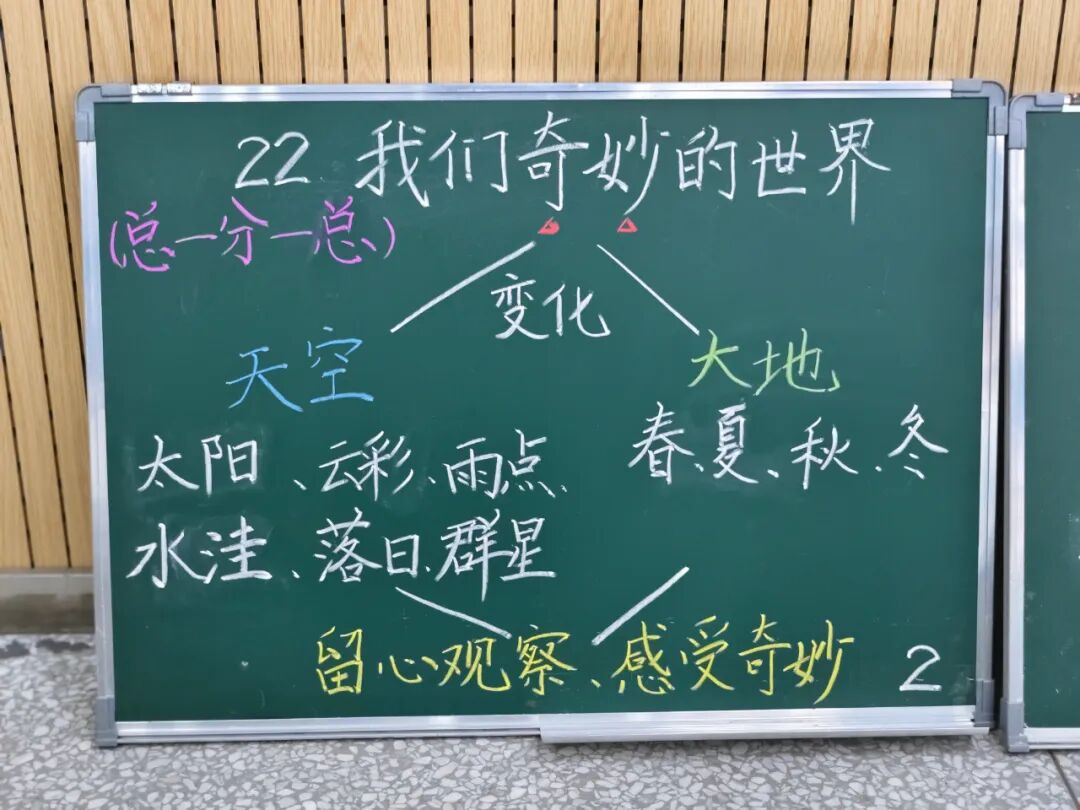 22 我们奇妙的世界
(总一分一总)
变化
天空
大地
太阳、云彩、雨点、
春、夏、秋、冬
水洼、落日、群星
留心观察、感受奇妙
2